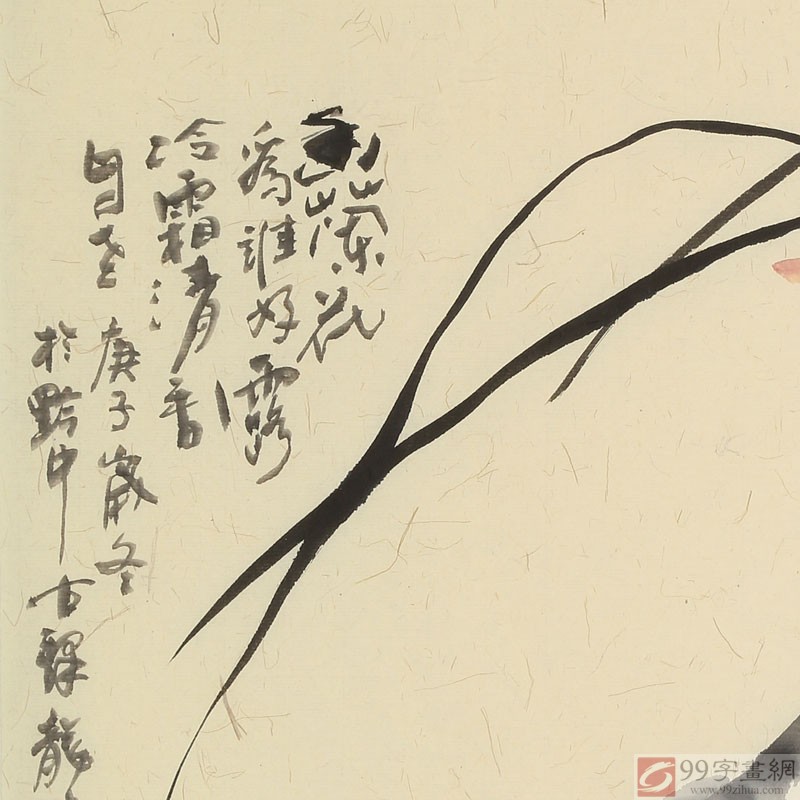 幽蘭花
為誰好露
冷霜清香
自老 庚子歲冬
於黔中古驛龍
99字畫網
www.99zihua.com